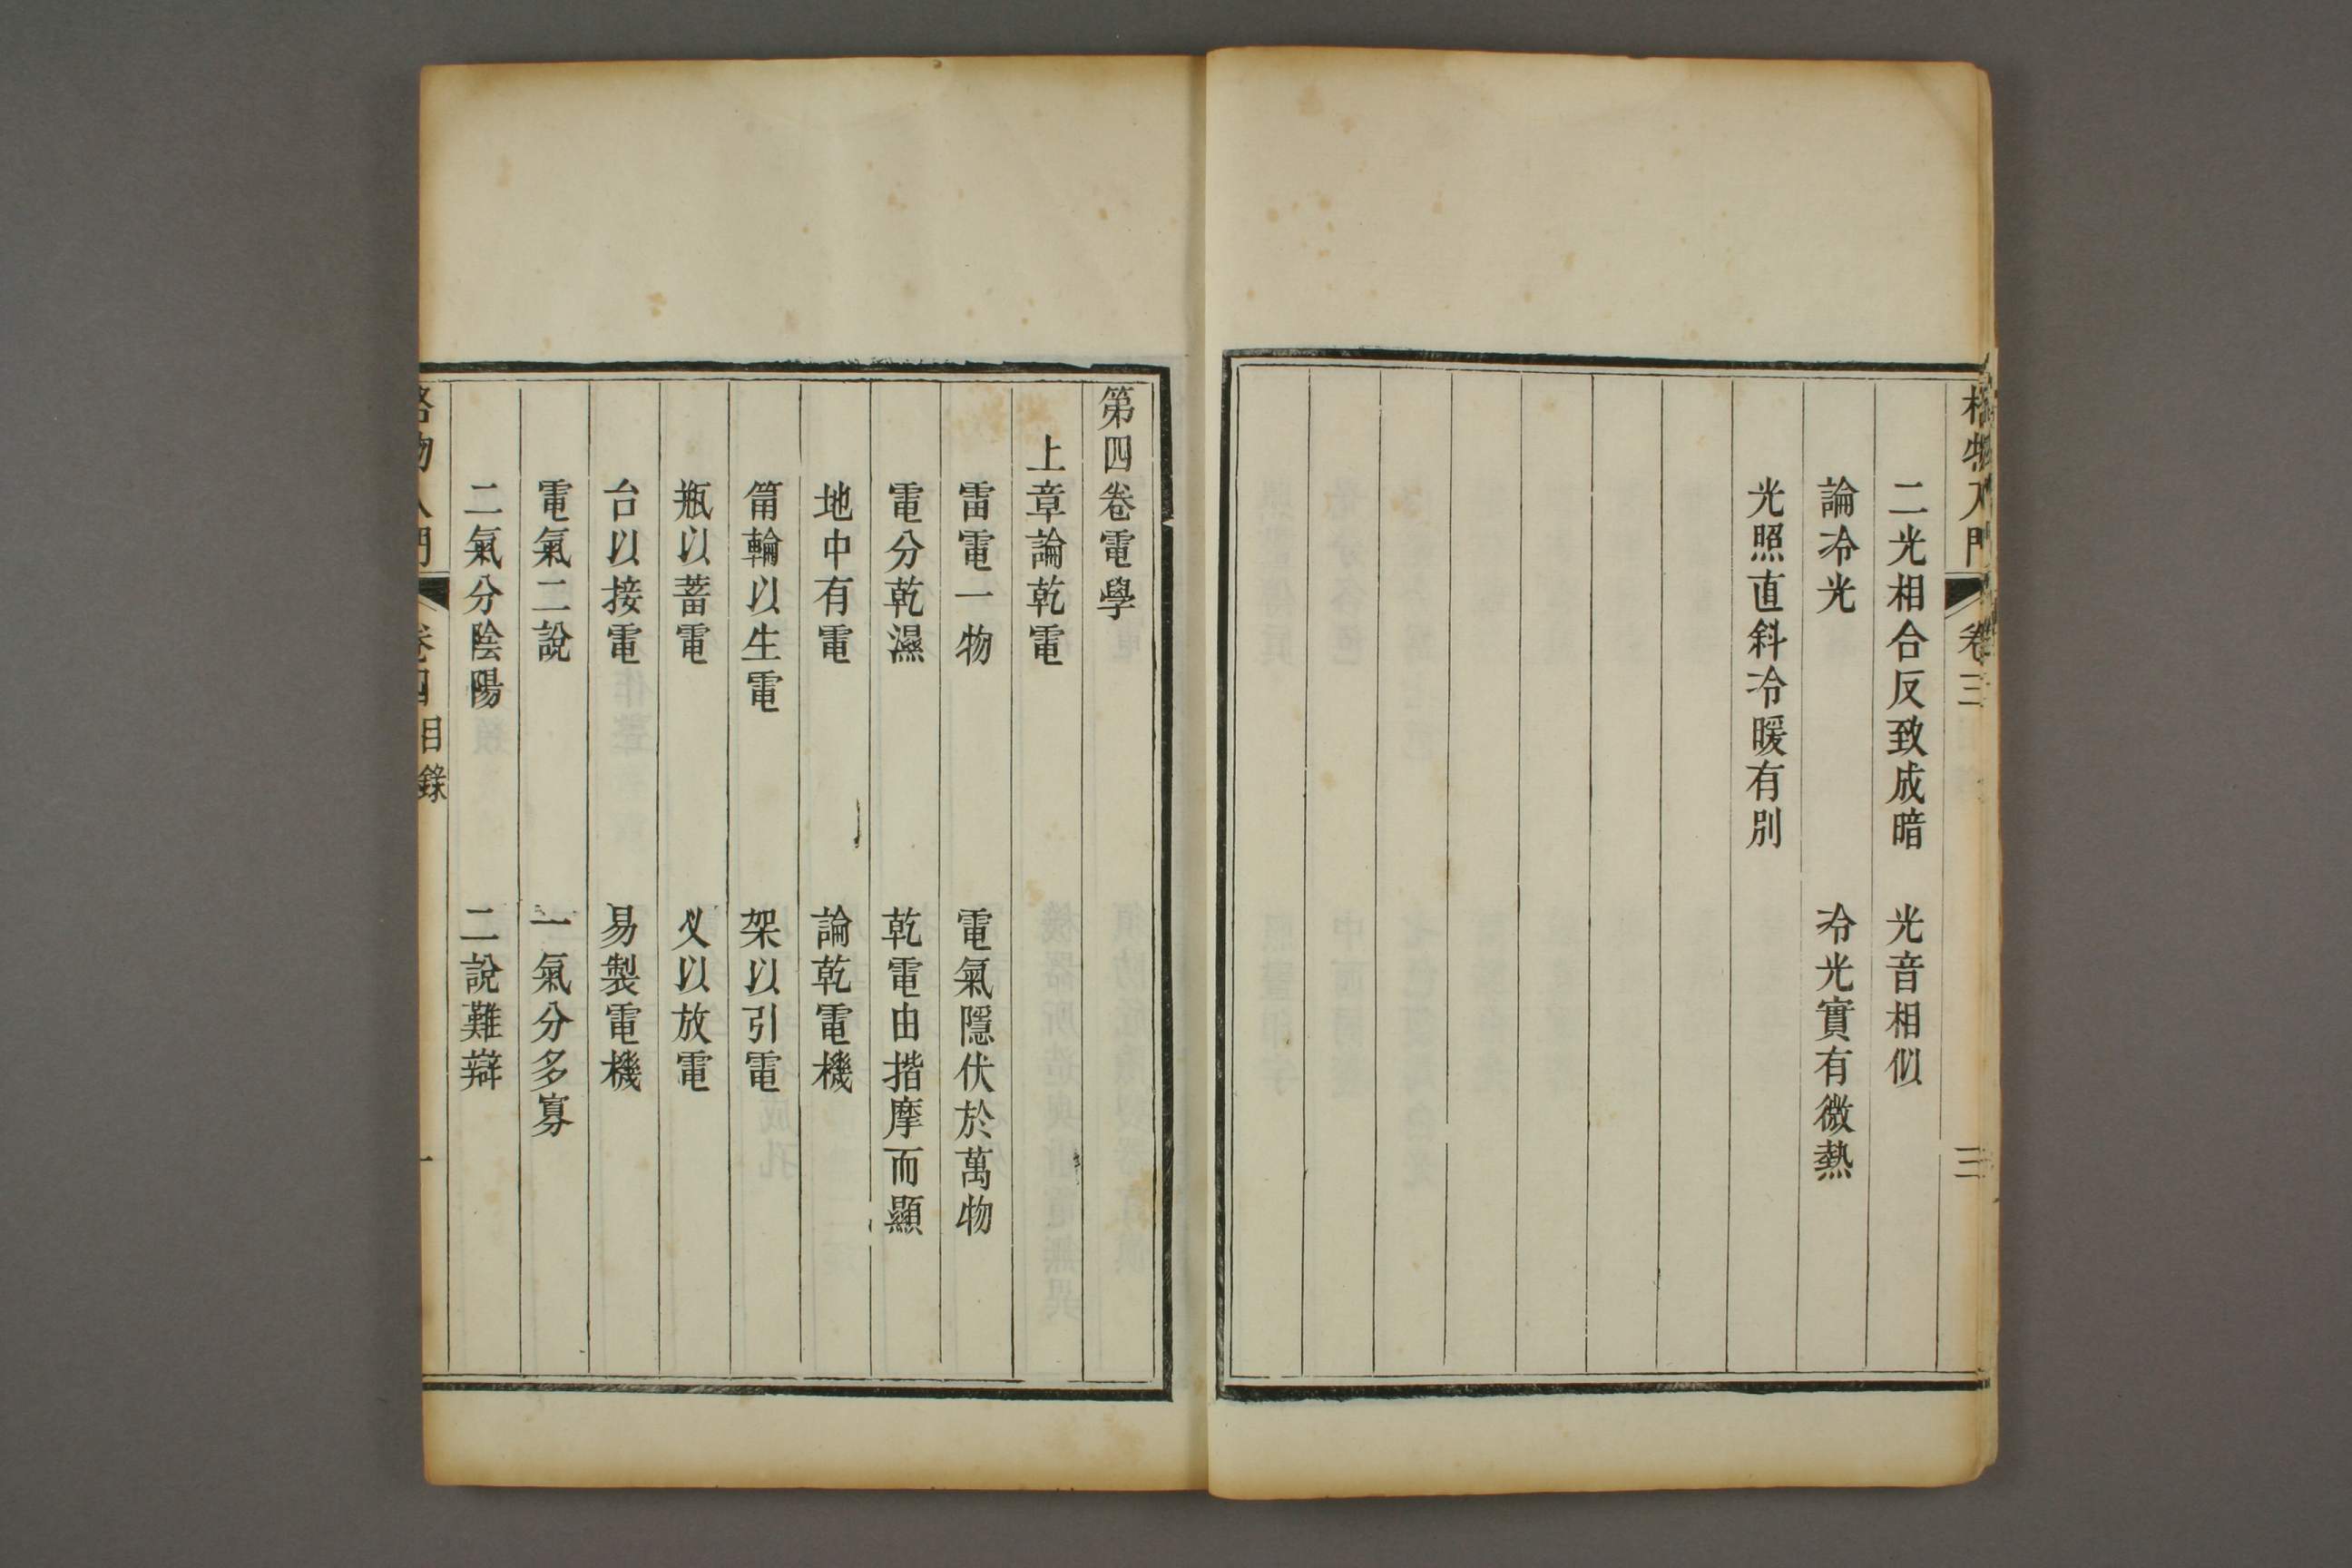 格物入門 卷三 三
二光相合反致成暗 光音相似
論冷光 冷光實有微熱
光照直斜冷暖有別
第四卷電學
上章論乾電
雷電一物 電氣隱伏於萬物
電分乾濕 乾電由揩摩而顯
地中有電 論乾電機
筩輪以生電 架以引電
瓶以蓄電 㕚以放電
台以接電 易製電機
電氣二說 一氣分多寡
二氣分陰陽 二說難辯
格物入門 卷四目錄 一